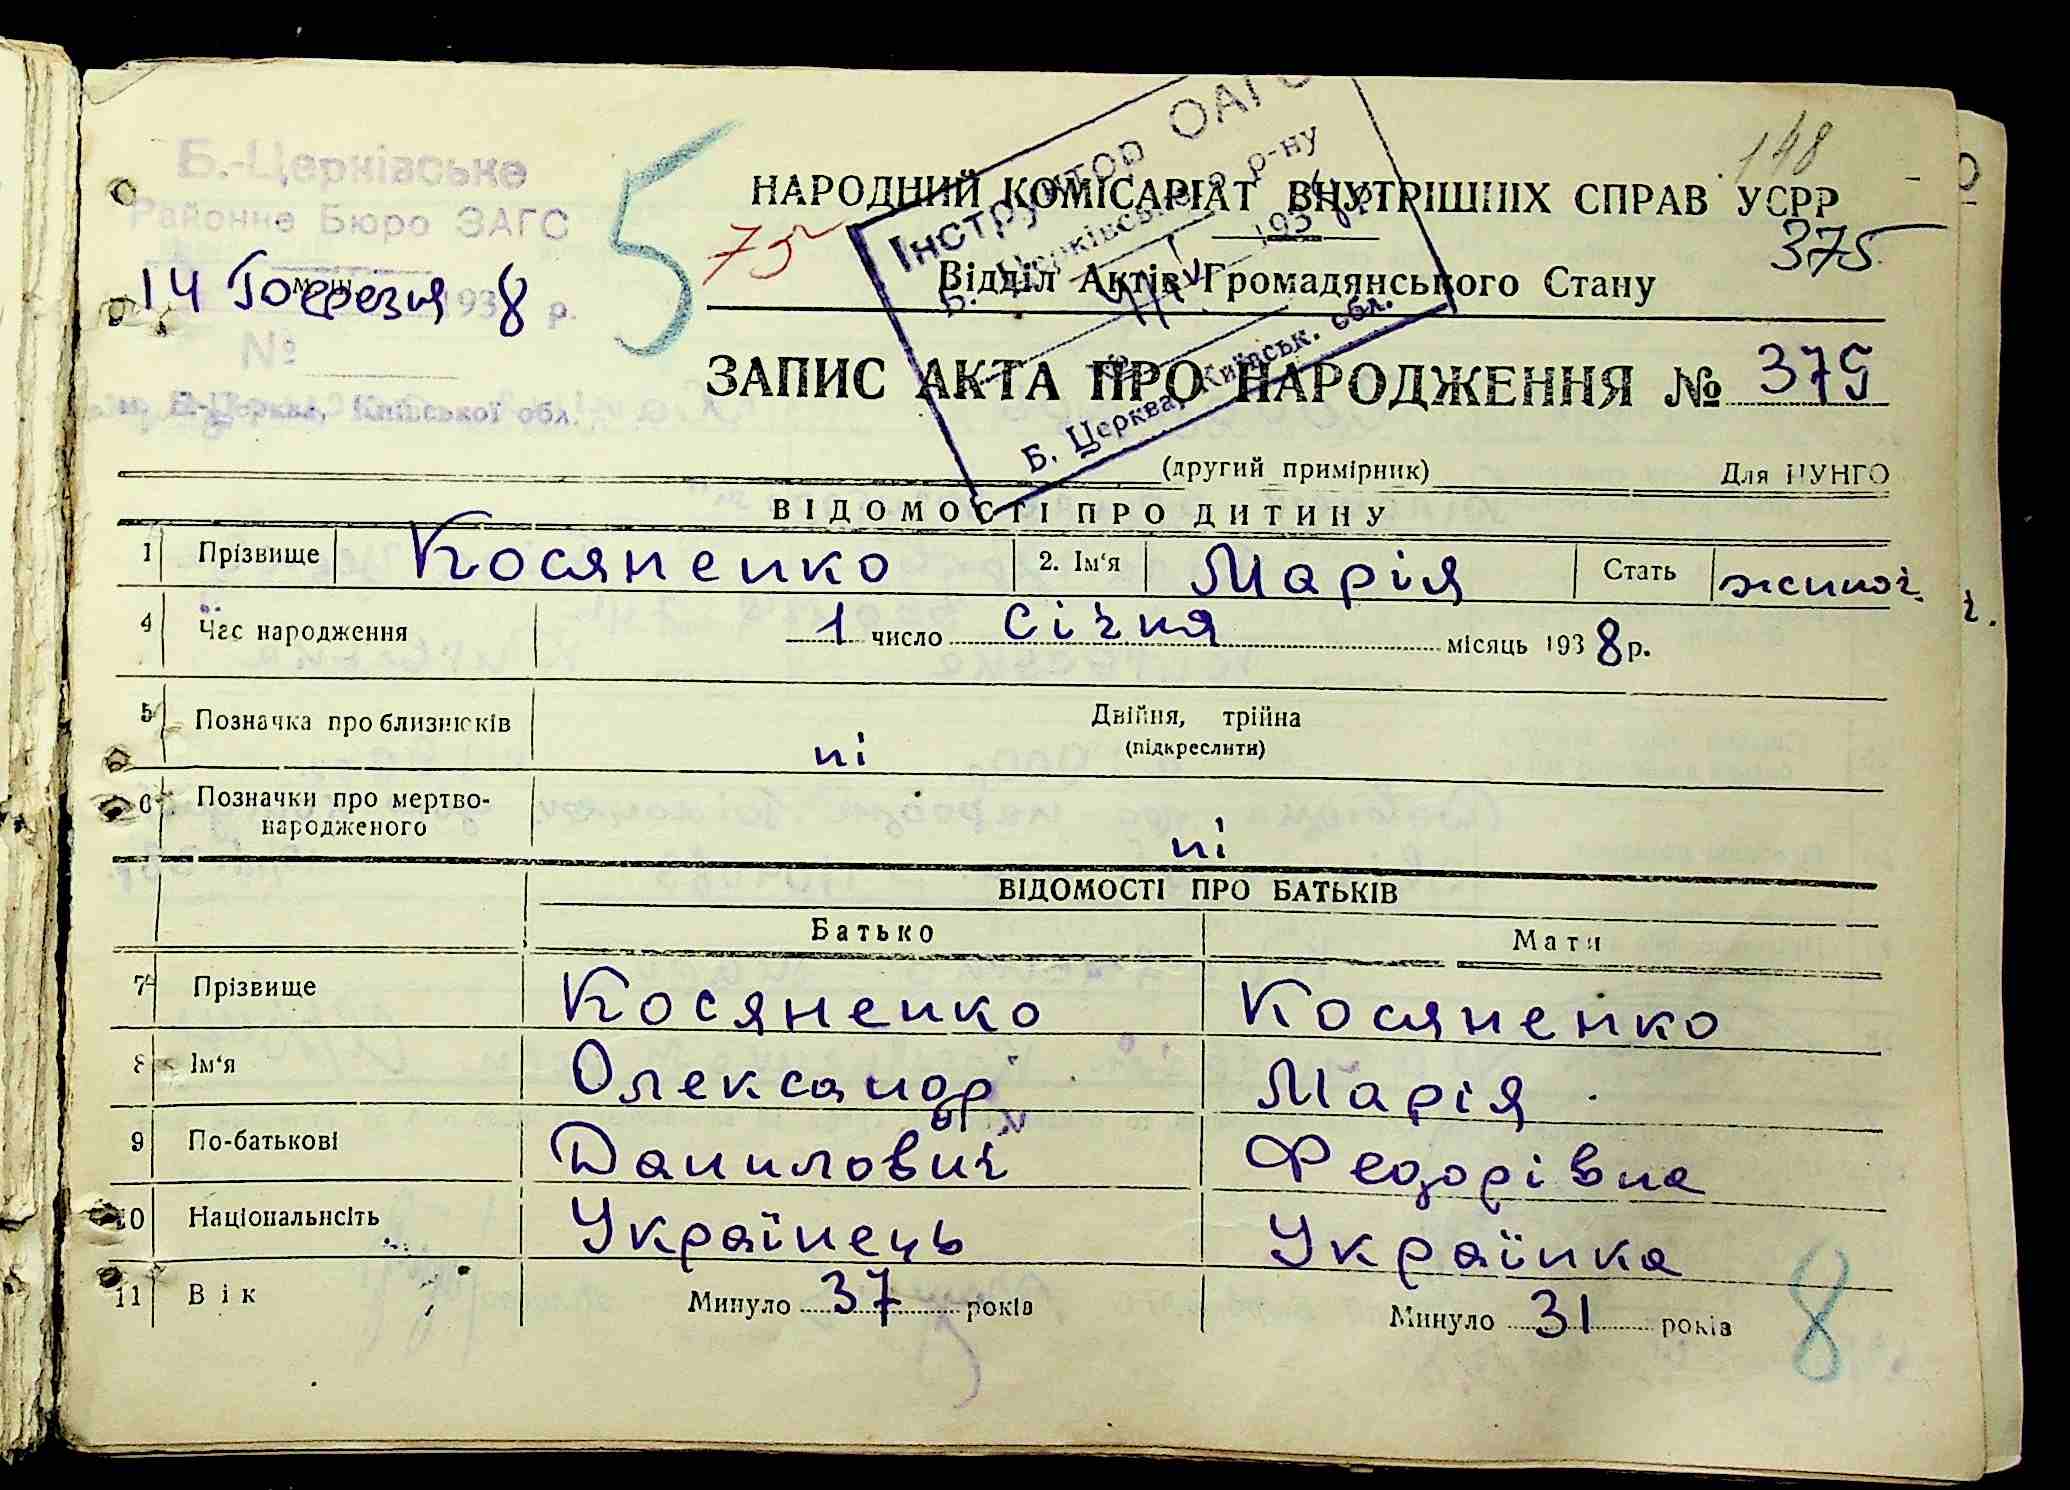 148
Б.-Церківське
Районне Бюро ЗАГС
14 Березня 1938 р.
№
м. Б-Церква, Київської обл.
5
75
Інструктор ОАГС
Б. Церківського р-ну
193 р.
Б. Церква, Київськ. обл.
НАРОДНИЙ КОМІСАРІАТ ВНУТРІШНІХ СПРАВ УСРР
375
Відділ Актів Громадянського Стану
ЗАПИС АКТА ПРО НАРОДЖЕННЯ № 375
(другий примірник) Для НУНГО
ВІДОМОСТІ ПРО ДИТИНУ
1 Прізвище Косяненко 2. Ім‘я Марія Стать жиноч.
4 Час народження 1 число січня місяць 1938 р.
5 Позначка про близнюків Двійня, трійна
(підкреслити)
ні
6 Позначки про мертво-
народженого
ні
ВІДОМОСТІ ПРО БАТЬКІВ
Батько Мати
7 Прізвище Косяненко Косяненко
8 Ім‘я Олександр Марія
9 По-батькові Данилович Федорівна
10 Національність Українець Українка
11 Вік Минуло 37 років Минуло 31 років
8